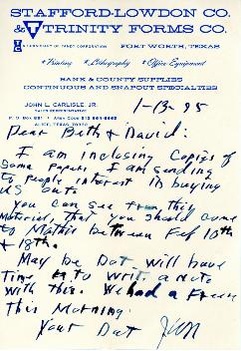 STAFFORD-LOWDON CO.
& TRINITY FORMS CO.
FORT WORTH, TEXAS
Printing • Lithography • Office Equipment
BANK & COUNTY SUPPLIES
CONTINUOUS AND SNAPOUT SPECIALTIES
JOHN L. CARLISLE, JR.
ALICE, TEXAS
1-13-95
Dear Beth & David:
I am inclosing Copies of
Some Papers I am sending
to People interest in buying
US out.
You can see from this
Material, that you should come
to Mathis between Feb 10th
& 18th.
May be Dot will have
time to write a note
with this. We had a Freeze
This Morning.
Your Dat